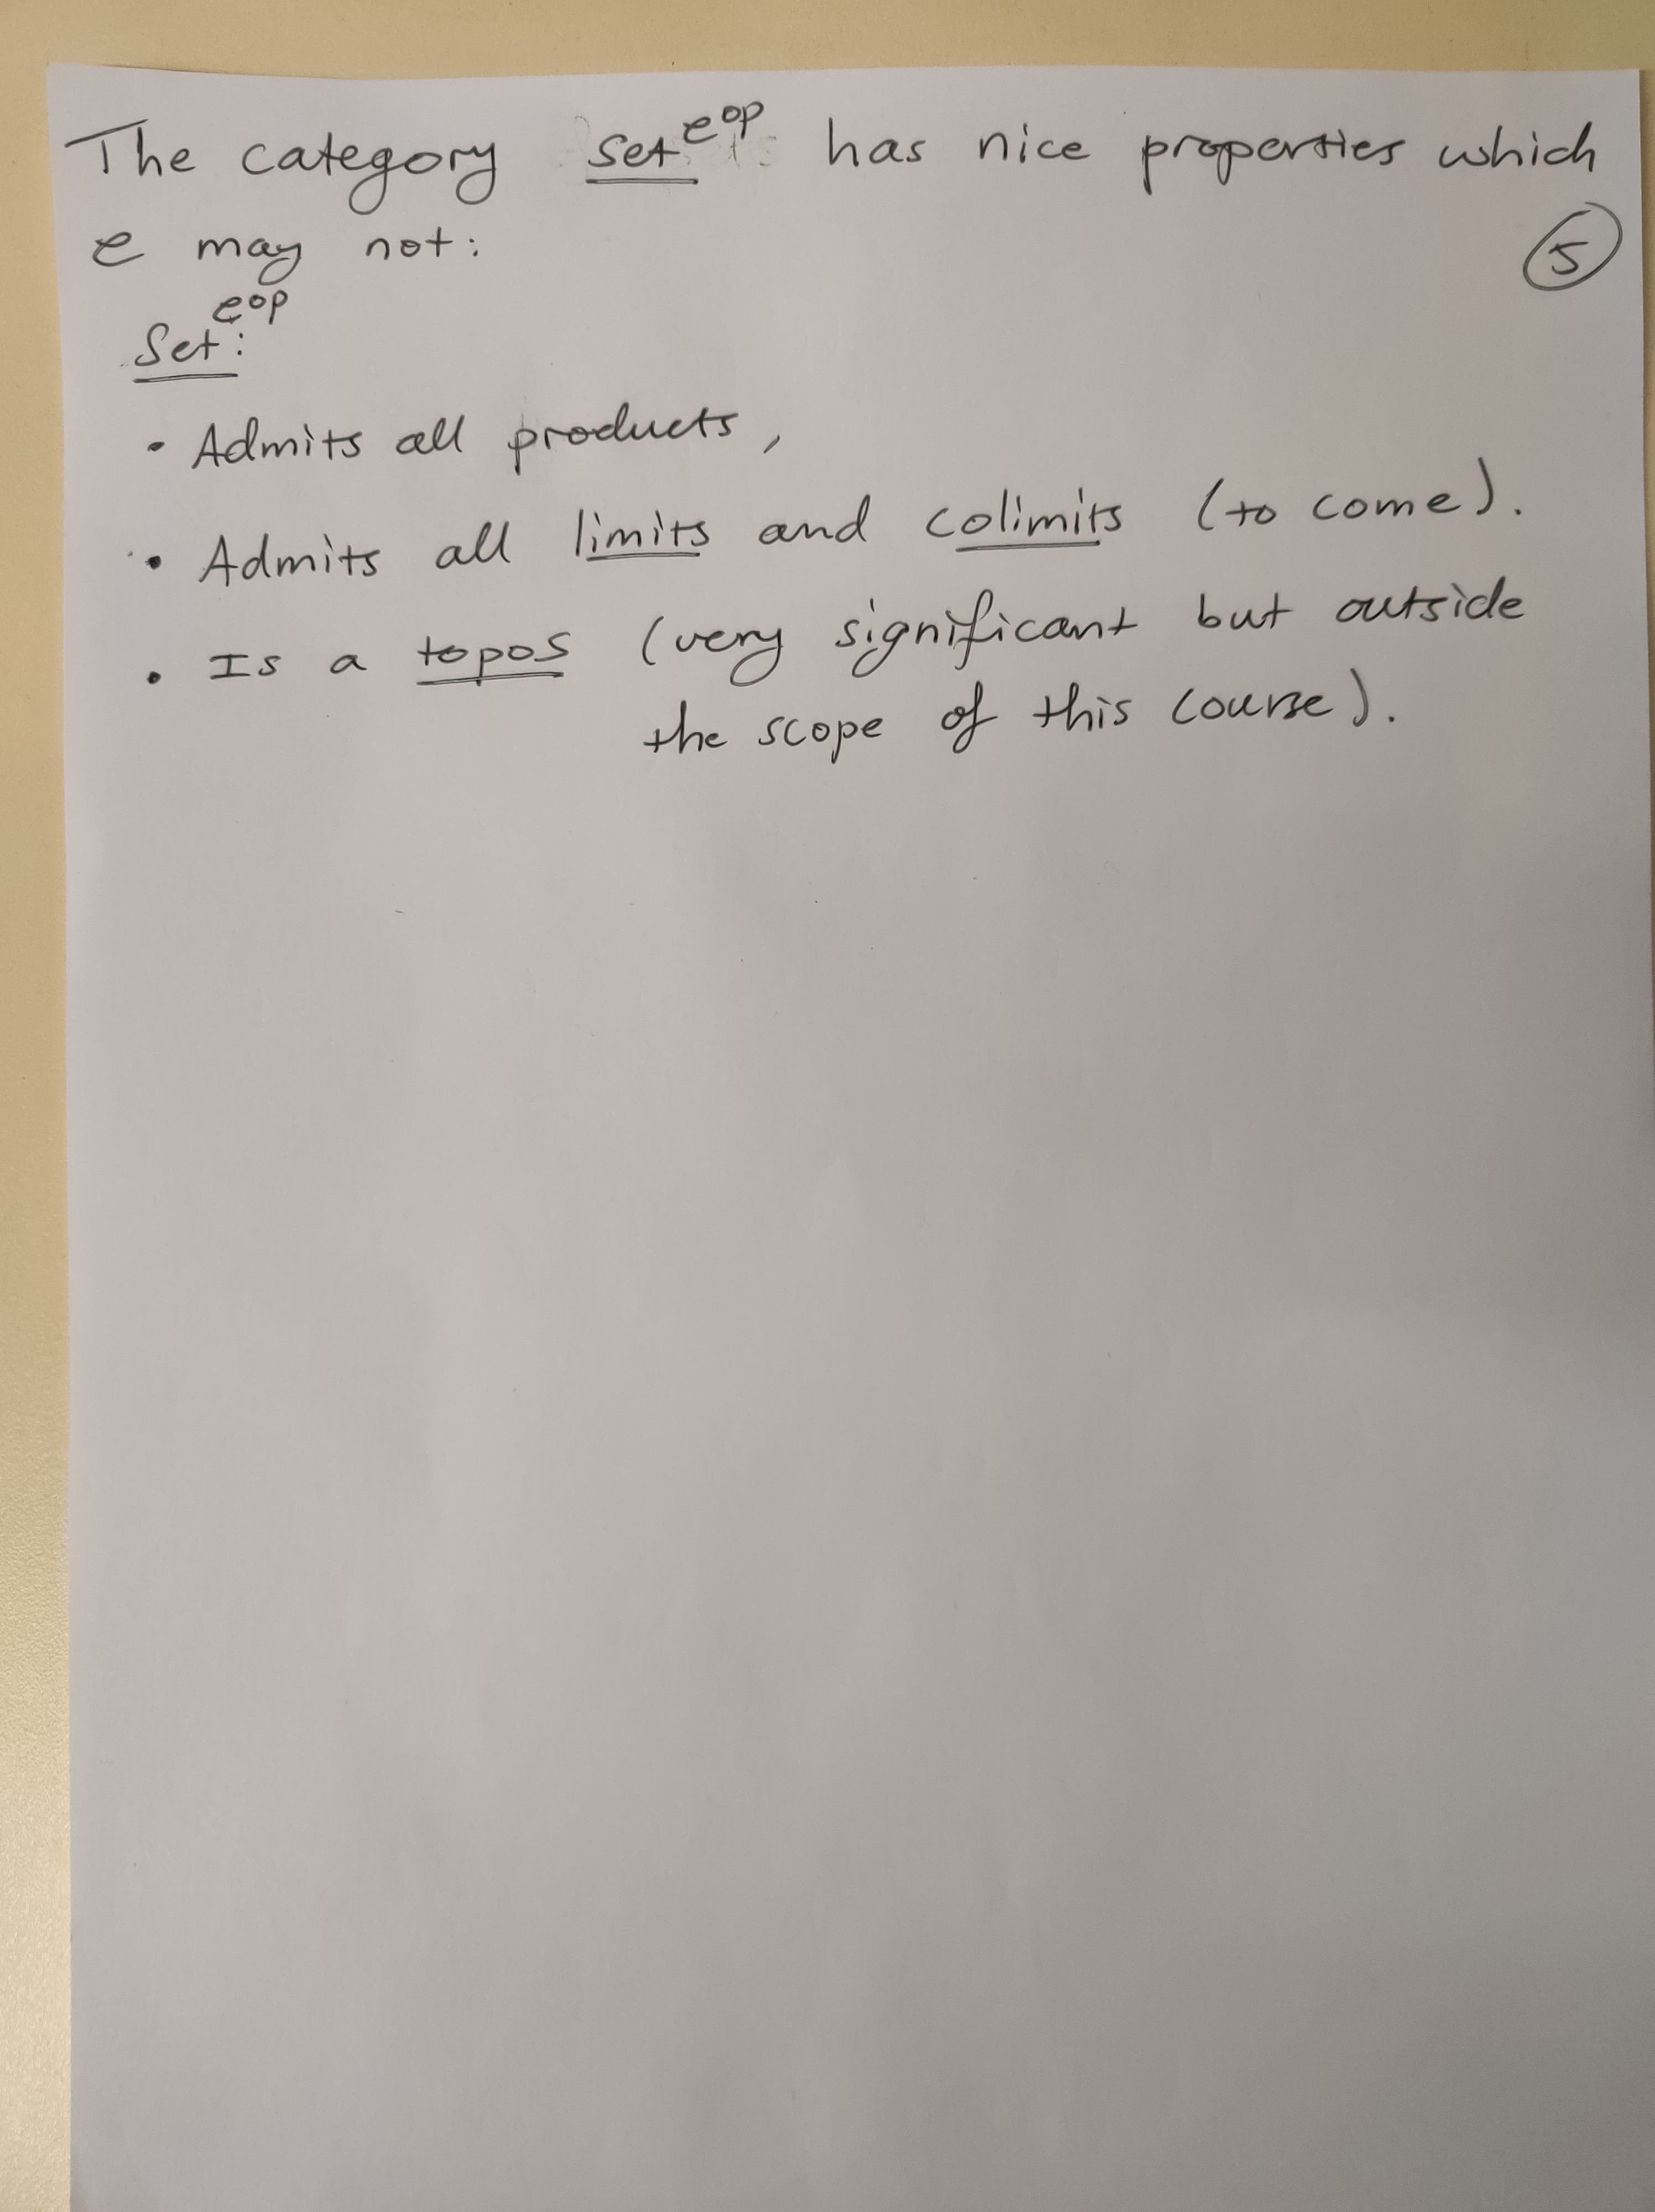 The category Set^{𝒞^{op}} has nice properties which
𝒞 may not:
⑤
Set^{𝒞^{op}}:
• Admits all products,
• Admits all limits and colimits (to come).
• Is a topos (very significant but outside
the scope of this course).